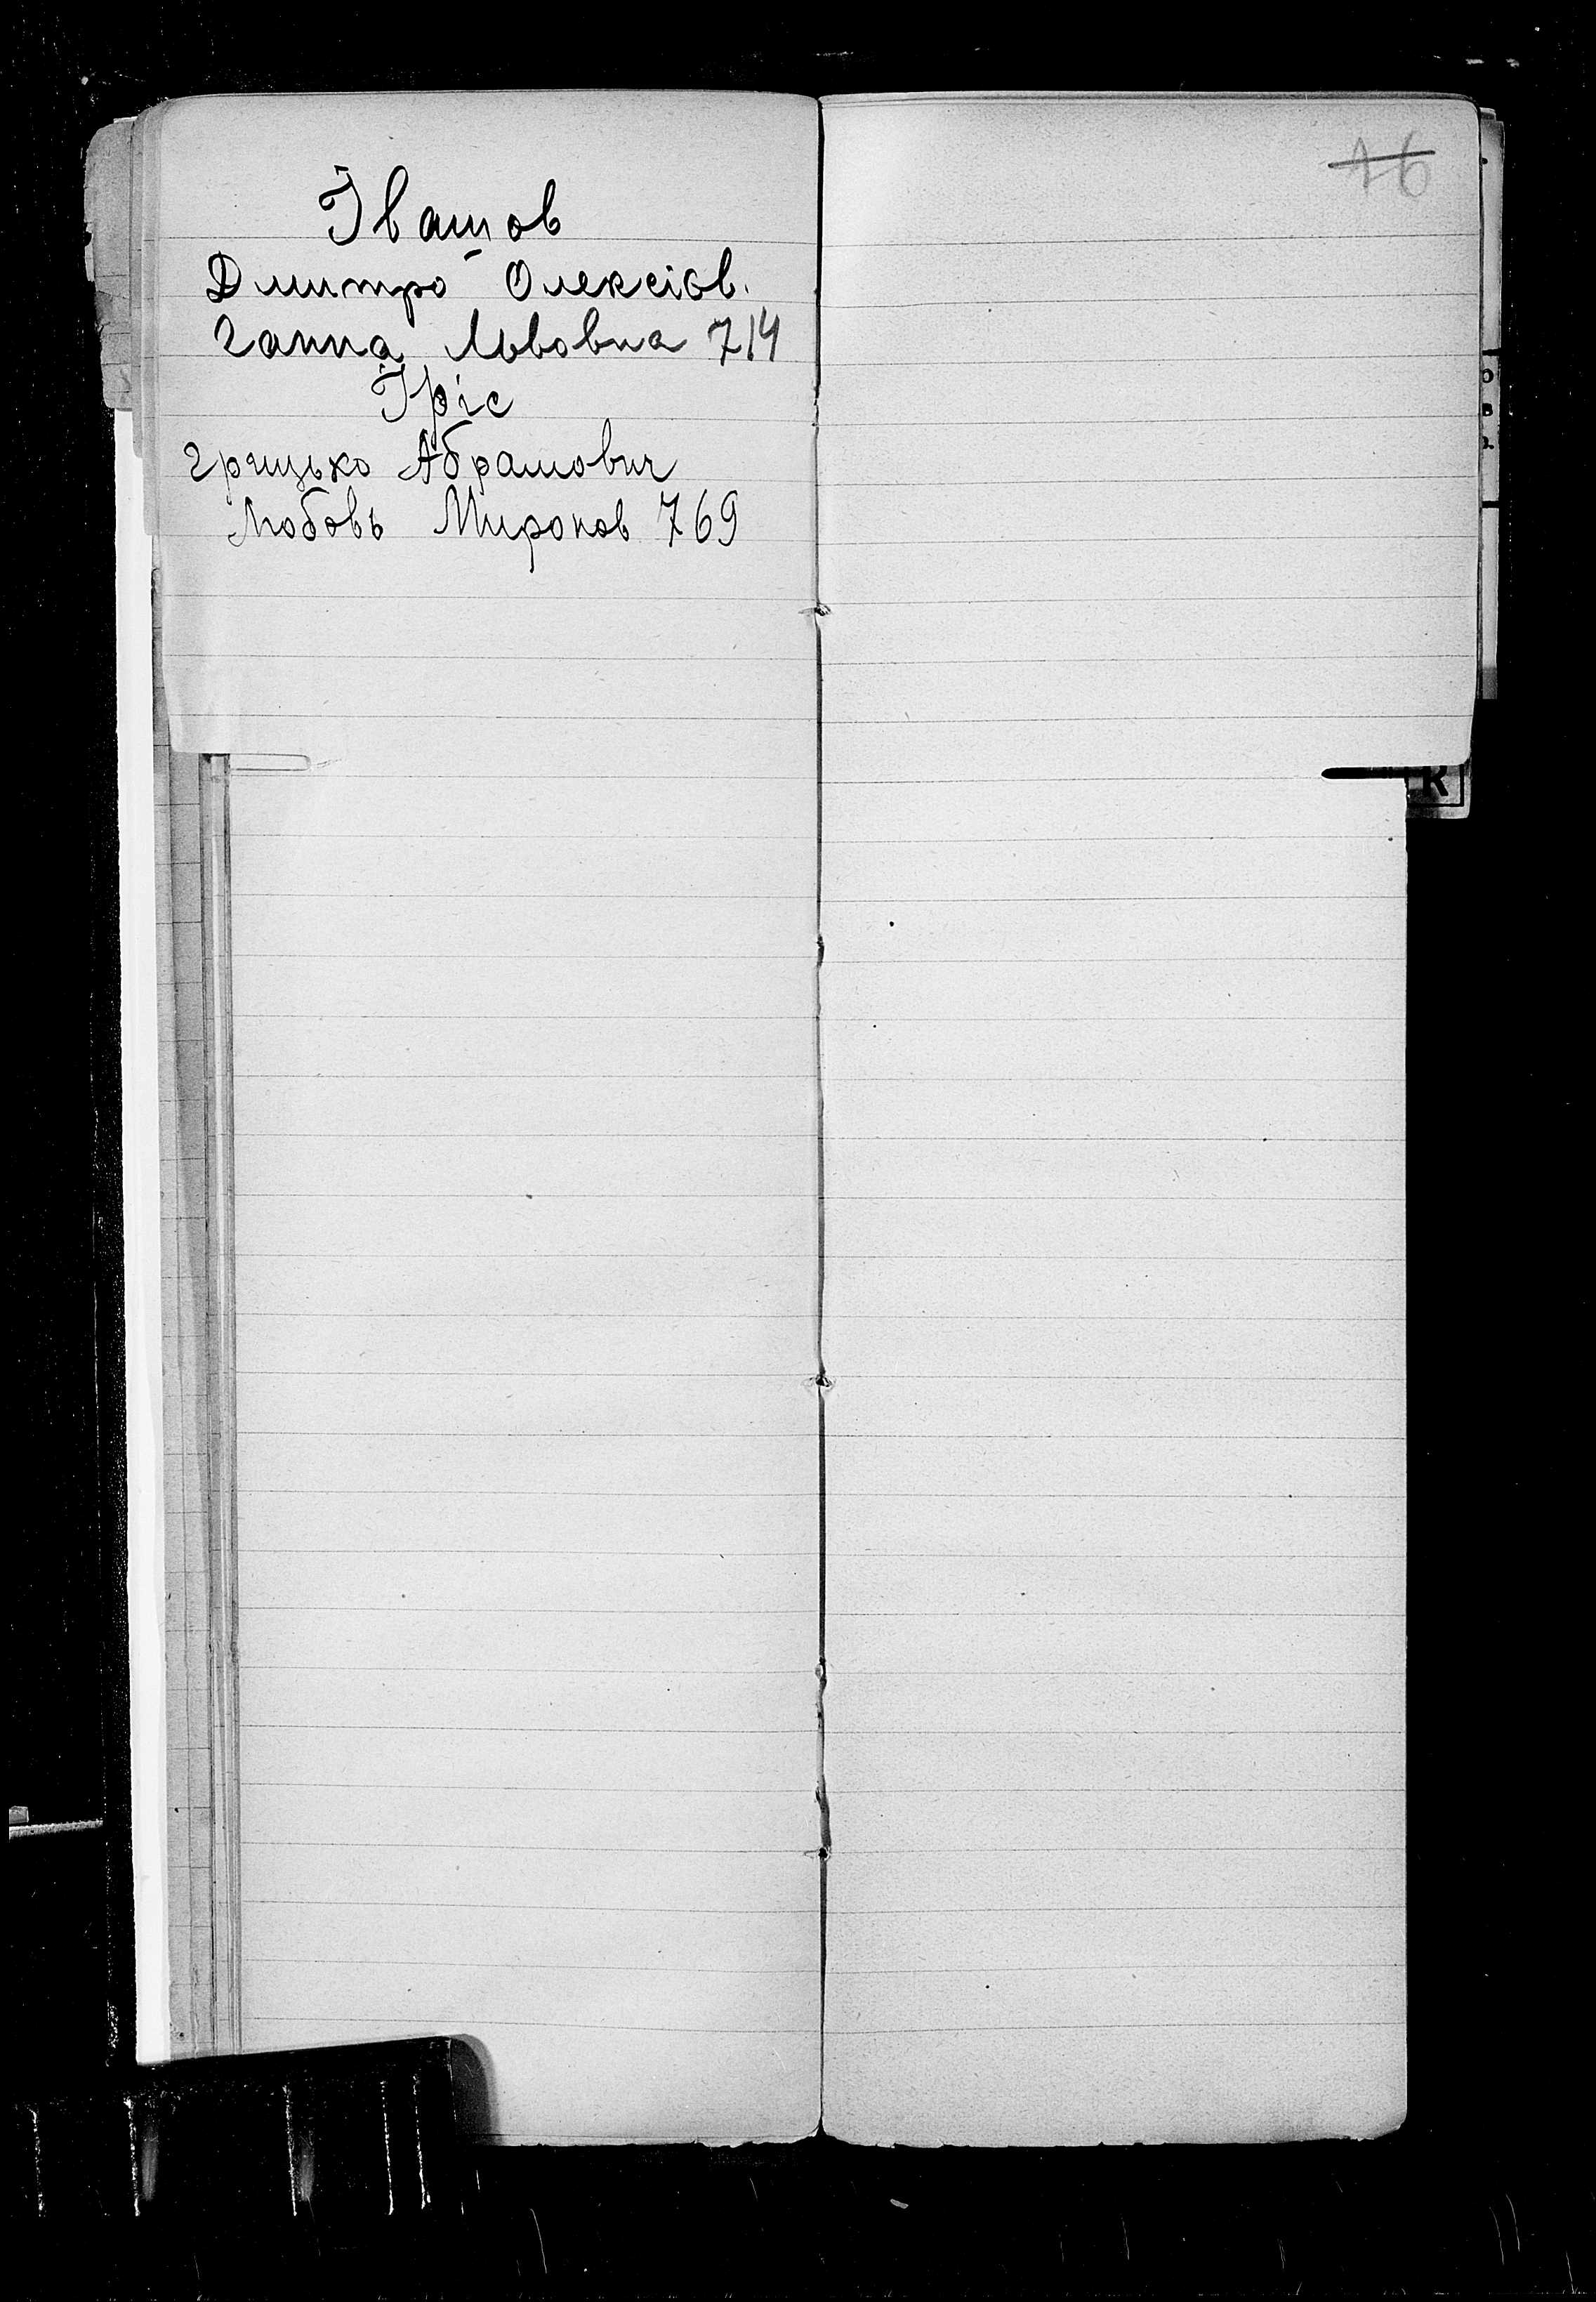 Івашов
Дмитро Олексієв.
Ганна Львовна 714
Іріс
Грицько Абрамович
Любовь Миронов 769
16
о
в
R